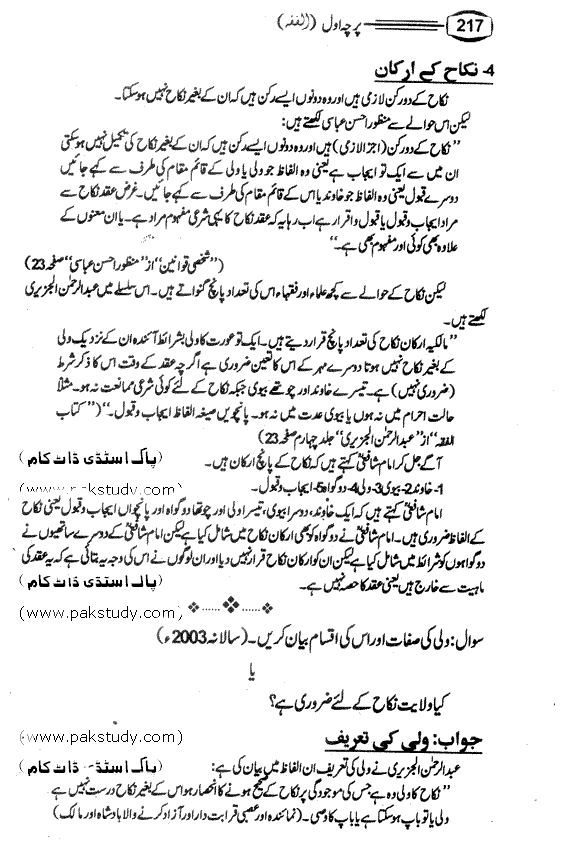 217 پرچہ اول (الفقہ)
4- نکاح کے ارکان
نکاح کے دو رکن لازمی ہیں اور وہ دونوں ایسے رکن ہیں کہ ان کے بغیر نکاح نہیں ہو سکتا۔
لیکن اس حوالے سے منظور احسن عباسی لکھتے ہیں:
”نکاح کے دو رکن (اجزا لازمی) ہیں اور وہ دونوں ایسے رکن ہیں کہ ان کے بغیر نکاح کی تکمیل نہیں ہو سکتی
ان میں سے ایک تو ایجاب ہے یعنی وہ الفاظ جو ولی یا ولی کے قائم مقام کی طرف سے کہے جائیں
دوسرے قبول یعنی وہ الفاظ جو خاوند یا اس کے قائم مقام کی طرف سے کہے جائیں۔ غرض عقد نکاح سے
مراد ایجاب و قبول یا قبول و اقرار ہے اب رہا یہ کہ عقد نکاح کا یہی شرعی مفہوم مراد ہے۔ یا ان معنوں کے
علاوہ بھی کوئی اور مفہوم بھی ہے۔“
(”شخصی قوانین“ از ”منظور احسن عباسی“ صفحہ 23)
لیکن نکاح کے حوالے سے کچھ علماء اور فقہاء اس کی تعداد پانچ گنواتے ہیں۔ اس سلسلے میں عبدالرحمٰن الجزیری
لکھتے ہیں۔
”مالکیہ ارکان نکاح کی تعداد پانچ قرار دیتے ہیں۔ ایک تو عورت کا ولی بشرائط آئندہ ان کے نزدیک ولی
کے بغیر نکاح نہیں ہوتا دوسرے مہر کے اس کا تعین ضروری ہے اگرچہ عقد کے وقت اس کا ذکر شرط
(ضروری نہیں) ہے۔ تیسرے خاوند اور چوتھے بیوی جبکہ نکاح کے لئے کوئی شرعی ممانعت نہ ہو۔ مثلاً
حالت احرام میں نہ ہوں یا بیوی عدت میں نہ ہو۔ پانچویں صیغہ الفاظ ایجاب و قبول۔“ (”کتاب
الفقہ“ از ”عبدالرحمٰن الجزیری“ جلد چہارم صفحہ 23)
آگے چل کر امام شافعیؒ کہتے ہیں کہ نکاح کے پانچ ارکان ہیں۔ (پاک اسٹڈی ڈاٹ کام)
1- خاوند 2- بیوی 3- ولی 4- دو گواہ 5- ایجاب و قبول۔ (www.pakstudy.com)
امام شافعیؒ کہتے ہیں کہ ایک خاوند، دوسرا بیوی، تیسرا ولی اور چوتھا دو گواہ اور پانچواں ایجاب و قبول یعنی نکاح
کے الفاظ ضروری ہیں۔ امام شافعیؒ نے دو گواہ کو بھی ارکان نکاح میں شامل کیا ہے لیکن امام شافعیؒ کے دوسرے ساتھیوں نے
دو گواہوں کو شرائط میں شامل کیا ہے لیکن ان کو ارکان نکاح قرار نہیں دیا اور ان لوگوں نے اس کی وجہ یہ بتائی ہے کہ یہ عقد کی
ماہیت سے خارج ہیں یعنی عقد کا حصہ نہیں ہے۔ (پاک اسٹڈی ڈاٹ کام)
(www.pakstudy.com)
سوال: ولی کی صفات اور اس کی اقسام بیان کریں۔ (سالانہ 2003ء)
یا
کیا ولایت نکاح کے لئے ضروری ہے؟
جواب: ولی کی تعریف (www.pakstudy.com)
عبدالرحمٰن الجزیری نے ولی کی تعریف ان الفاظ میں بیان کی ہے: (پاک اسٹڈی ڈاٹ کام)
”نکاح کا ولی وہ ہے جس کی موجودگی پر نکاح کے صحیح ہونے کا انحصار ہو اس کے بغیر نکاح درست نہیں ہے
ولی یا تو باپ ہو سکتا ہے یا باپ کا وصی۔ (نمائندہ اور عصبی قرابت دار اور آزاد کرنے والا بادشاہ اور مالک)